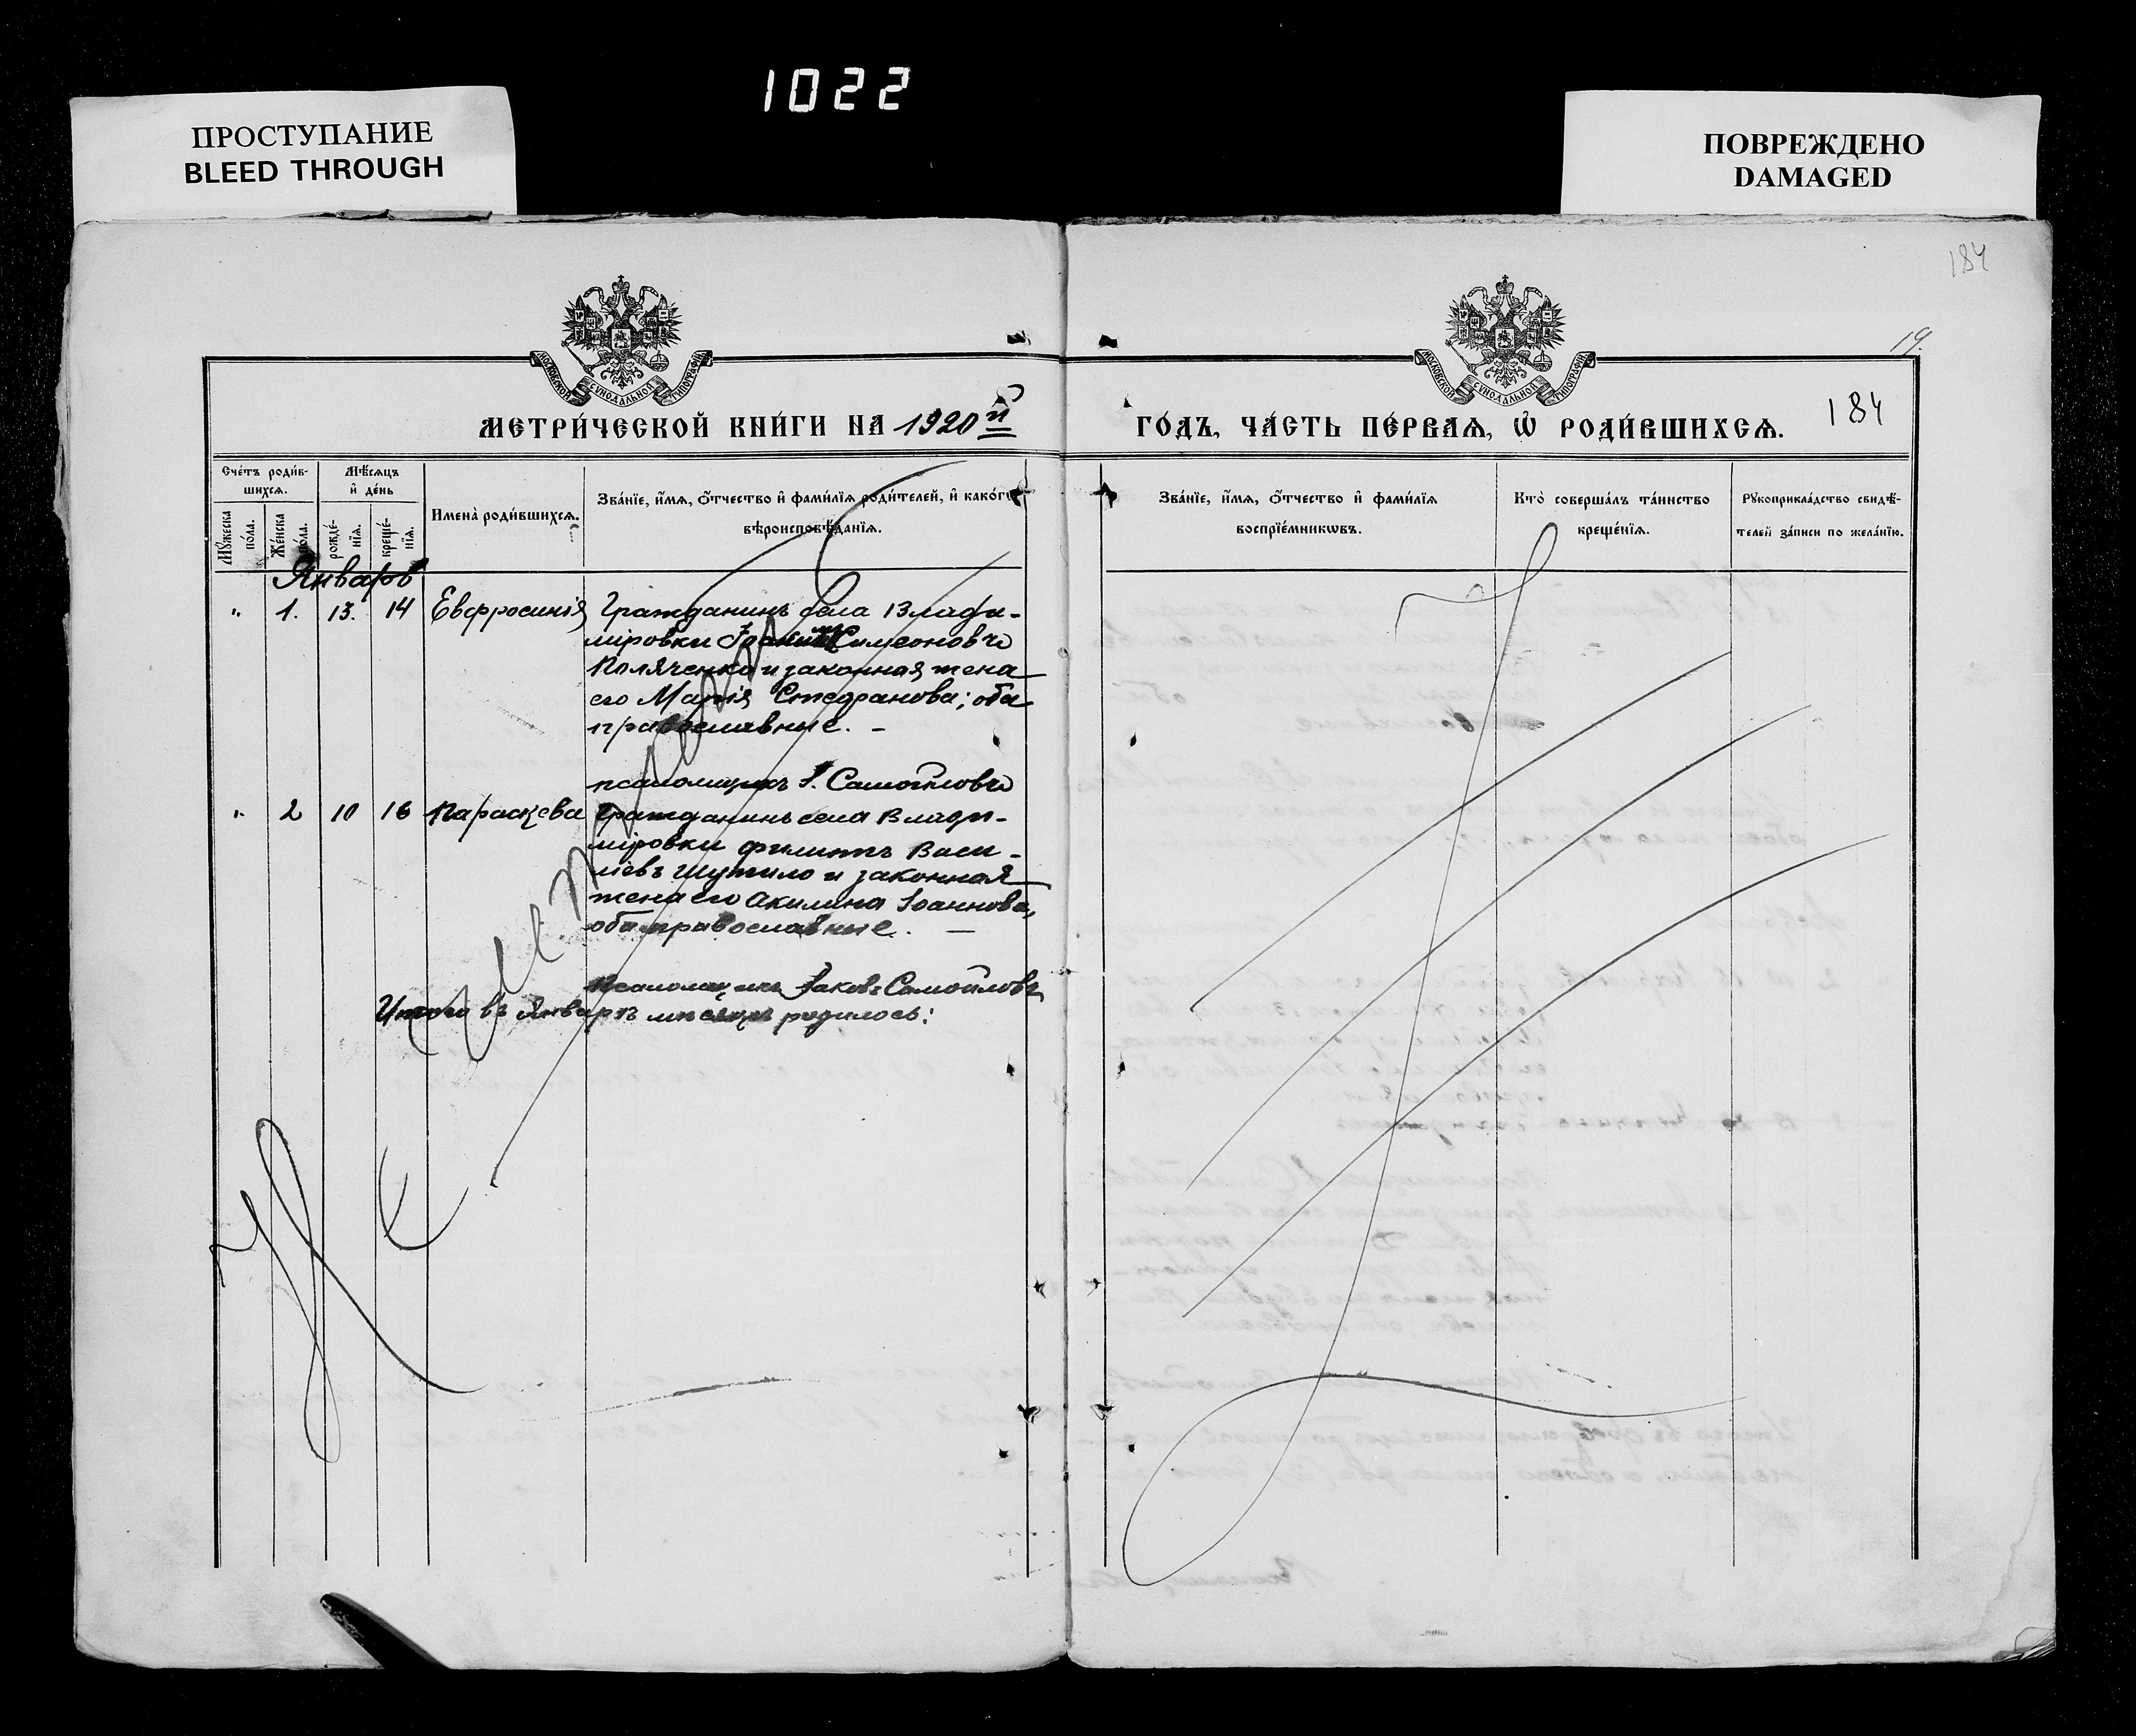 1022
ПРОСТУПАНИЕ
BLEED THROUGH
ПОВРЕЖДЕНО
DAMAGED
184
19.
МОСКОВСКОЙ СУНОДАЛЬНОЙ ТИПОГРАФІИ
МОСКОВСКОЙ СУНОДАЛЬНОЙ ТИПОГРАФІИ
МЕТРИ́ЧЕСКОЙ КНИ́ГИ НА 1920 й
ГО́ДЪ, ЧА́СТЬ ПЕ́РВАѦ, Ѡ҆ РОДИ́ВШИХСѦ.
184
Сче́тъ роди́в-
шихсѧ.
Мѣ́сѧцъ
и҆ де́нь
Мꙋ́жеска
по́ла.
Же́нска
по́ла.
рожде́-
нїѧ.
креще́-
нїѧ.
Имена̀ роди́вшихсѧ.
Зва́нїе, и҆́мѧ, ѻ҆́тчество и҆ фами́лїѧ роди́телей, и҆ како́гѡ
вѣроисповѣ́данїѧ.
Зва́нїе, и҆́мѧ, ѻ҆́тчество и҆ фами́лїѧ
воспрїе́мникѡвъ.
Кто̀ соверша́лъ та́инство
креще́нїѧ.
Рꙋкоприкла́дство свидѣ́-
телей за́писи по жела́нїю.
Январь
" 1. 13. 14 Евфросинія Гражданинъ села Влади-
міровки Симеоновъ
Поляченко и законная жена
его Марія Стефанова; оба
православные. –
псаломщикъ І. Самойловъ
" 2 10 16 Параскева Гражданинъ села Влади-
міровки Филиппъ Васи-
ліевъ Шутило и законная
жена его Акилина Іоаннова,
оба православные. —
Псаломщикъ Іаковъ Самойловъ
Итого въ Январѣ мѣсяцѣ родилось: